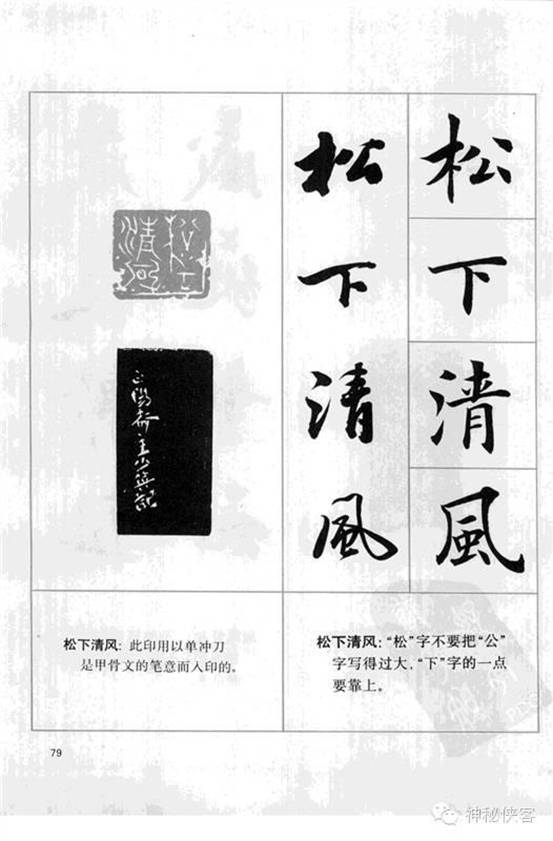 松下清風
松下清風
松下清风
松下清风：此印用以单冲刀
是甲骨文的笔意而入印的。
松下清风：“松”字不要把“公”
字写得过大，“下”字的一点
要靠上。
79
神秘侠客